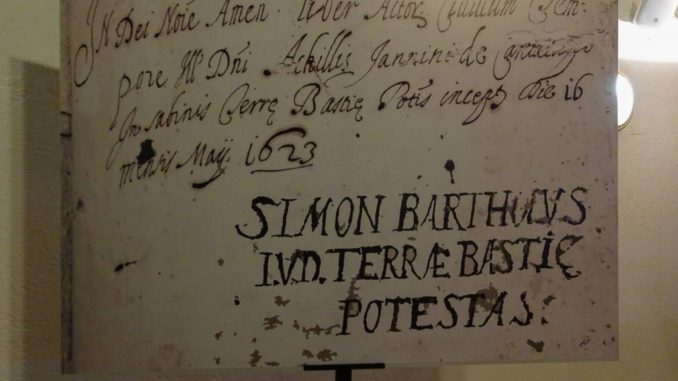 In Dei Noie Amen. Liber Actorũ Civilium tem-
pore Ill Dñi Achillis Jannini de
In Sabinis Terrę Bastię Potis incept Die 16
mensis Maij 1623
SIMON BARTHULUS
I.V.D. TERRÆ BASTIĘ
POTESTAS.